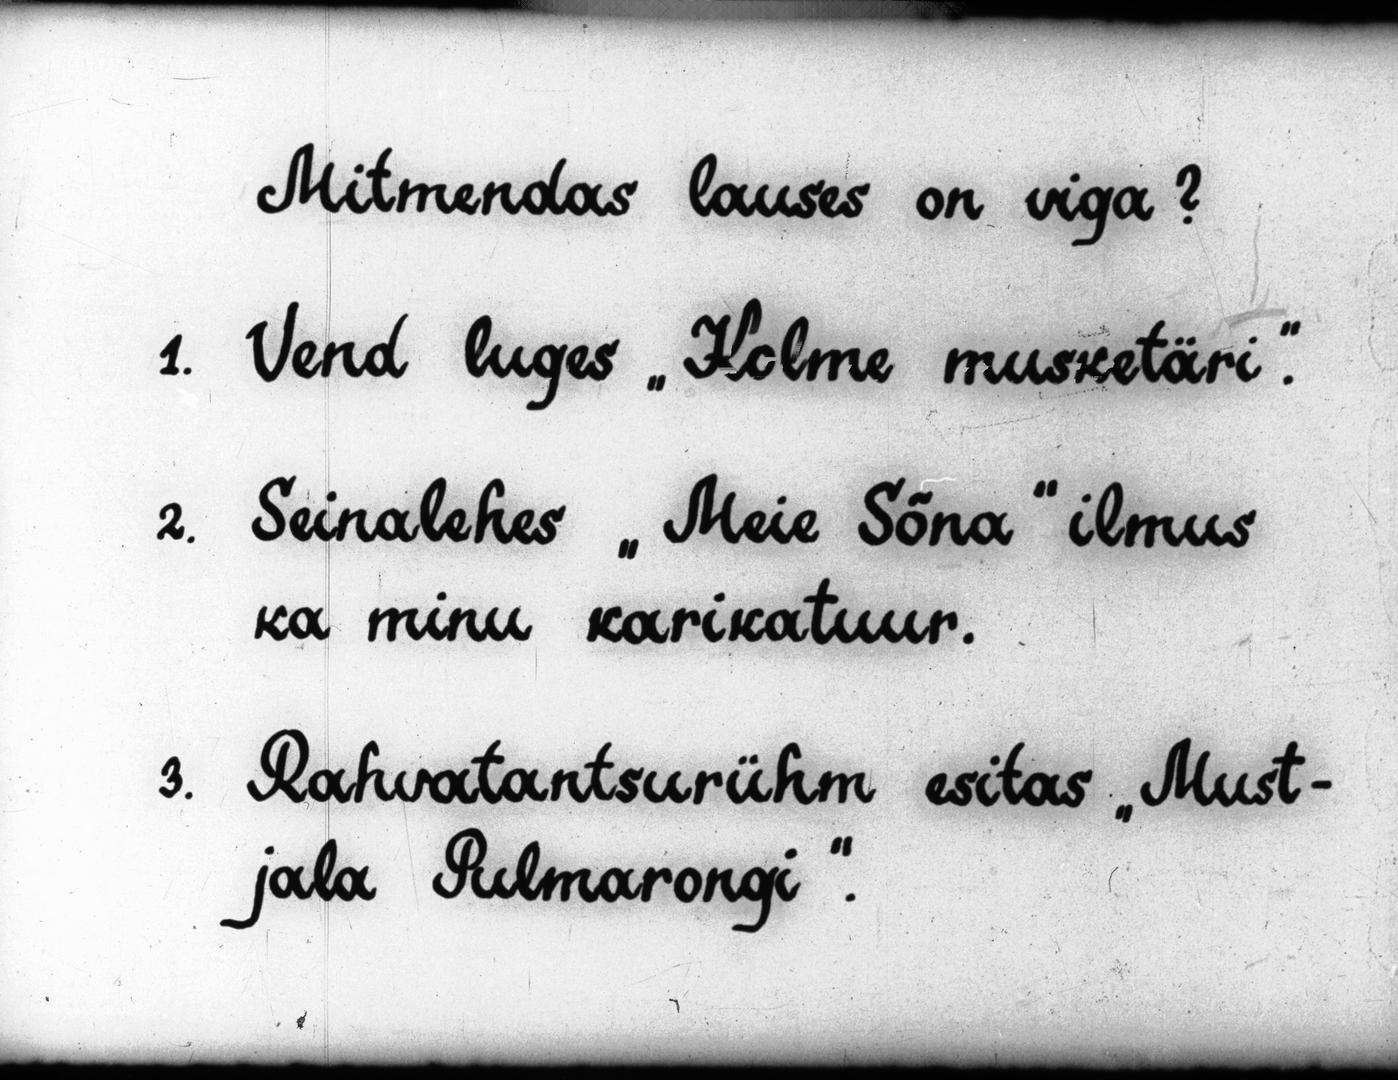 Mitmendas lauses on viga?
1. Vend luges „Kolme musketäri".
2. Seinalehes „Meie Sõna" ilmus
ka minu karikatuur.
3. Rahvatantsurühm esitas „Must-
jala Pulmarongi".